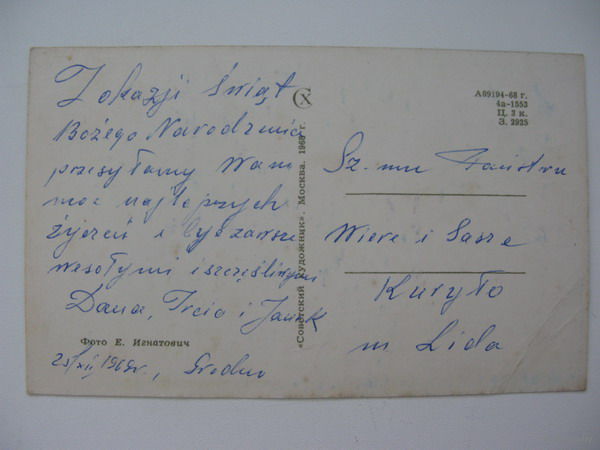 Z okazji Świąt
Bożego Narodzenia
przesyłamy Wam
moc najlepszych
życzeń i
wesołymi i szczęśliwymi
Dana, Ircia i Janek
Фото Е. Игнатович
25/XII 1969r., Grodno
«Советский художник». Москва. 1968 г.
А09194-68 г.
4а-1553
Ц. 3 к.
З. 2925
Sz. mu Państwu
Wiere i Sasze
Kuryło
m Lida